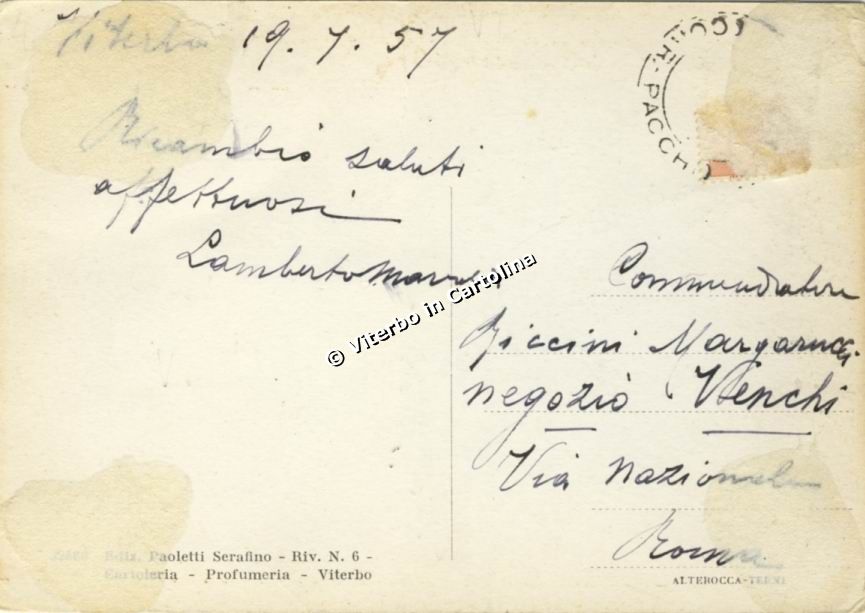 Viterbo 19.7.57
Ricambio saluti
affettuosi
Lamberto
© Viterbo in Cartolina
PACCHI
Commendatore
Margarucci
negozio Venchi
Via Nazionale
Roma
Ediz. Paoletti Serafino - Riv. N. 6 -
Cartoleria - Profumeria - Viterbo
ALTEROCCA-TERNI